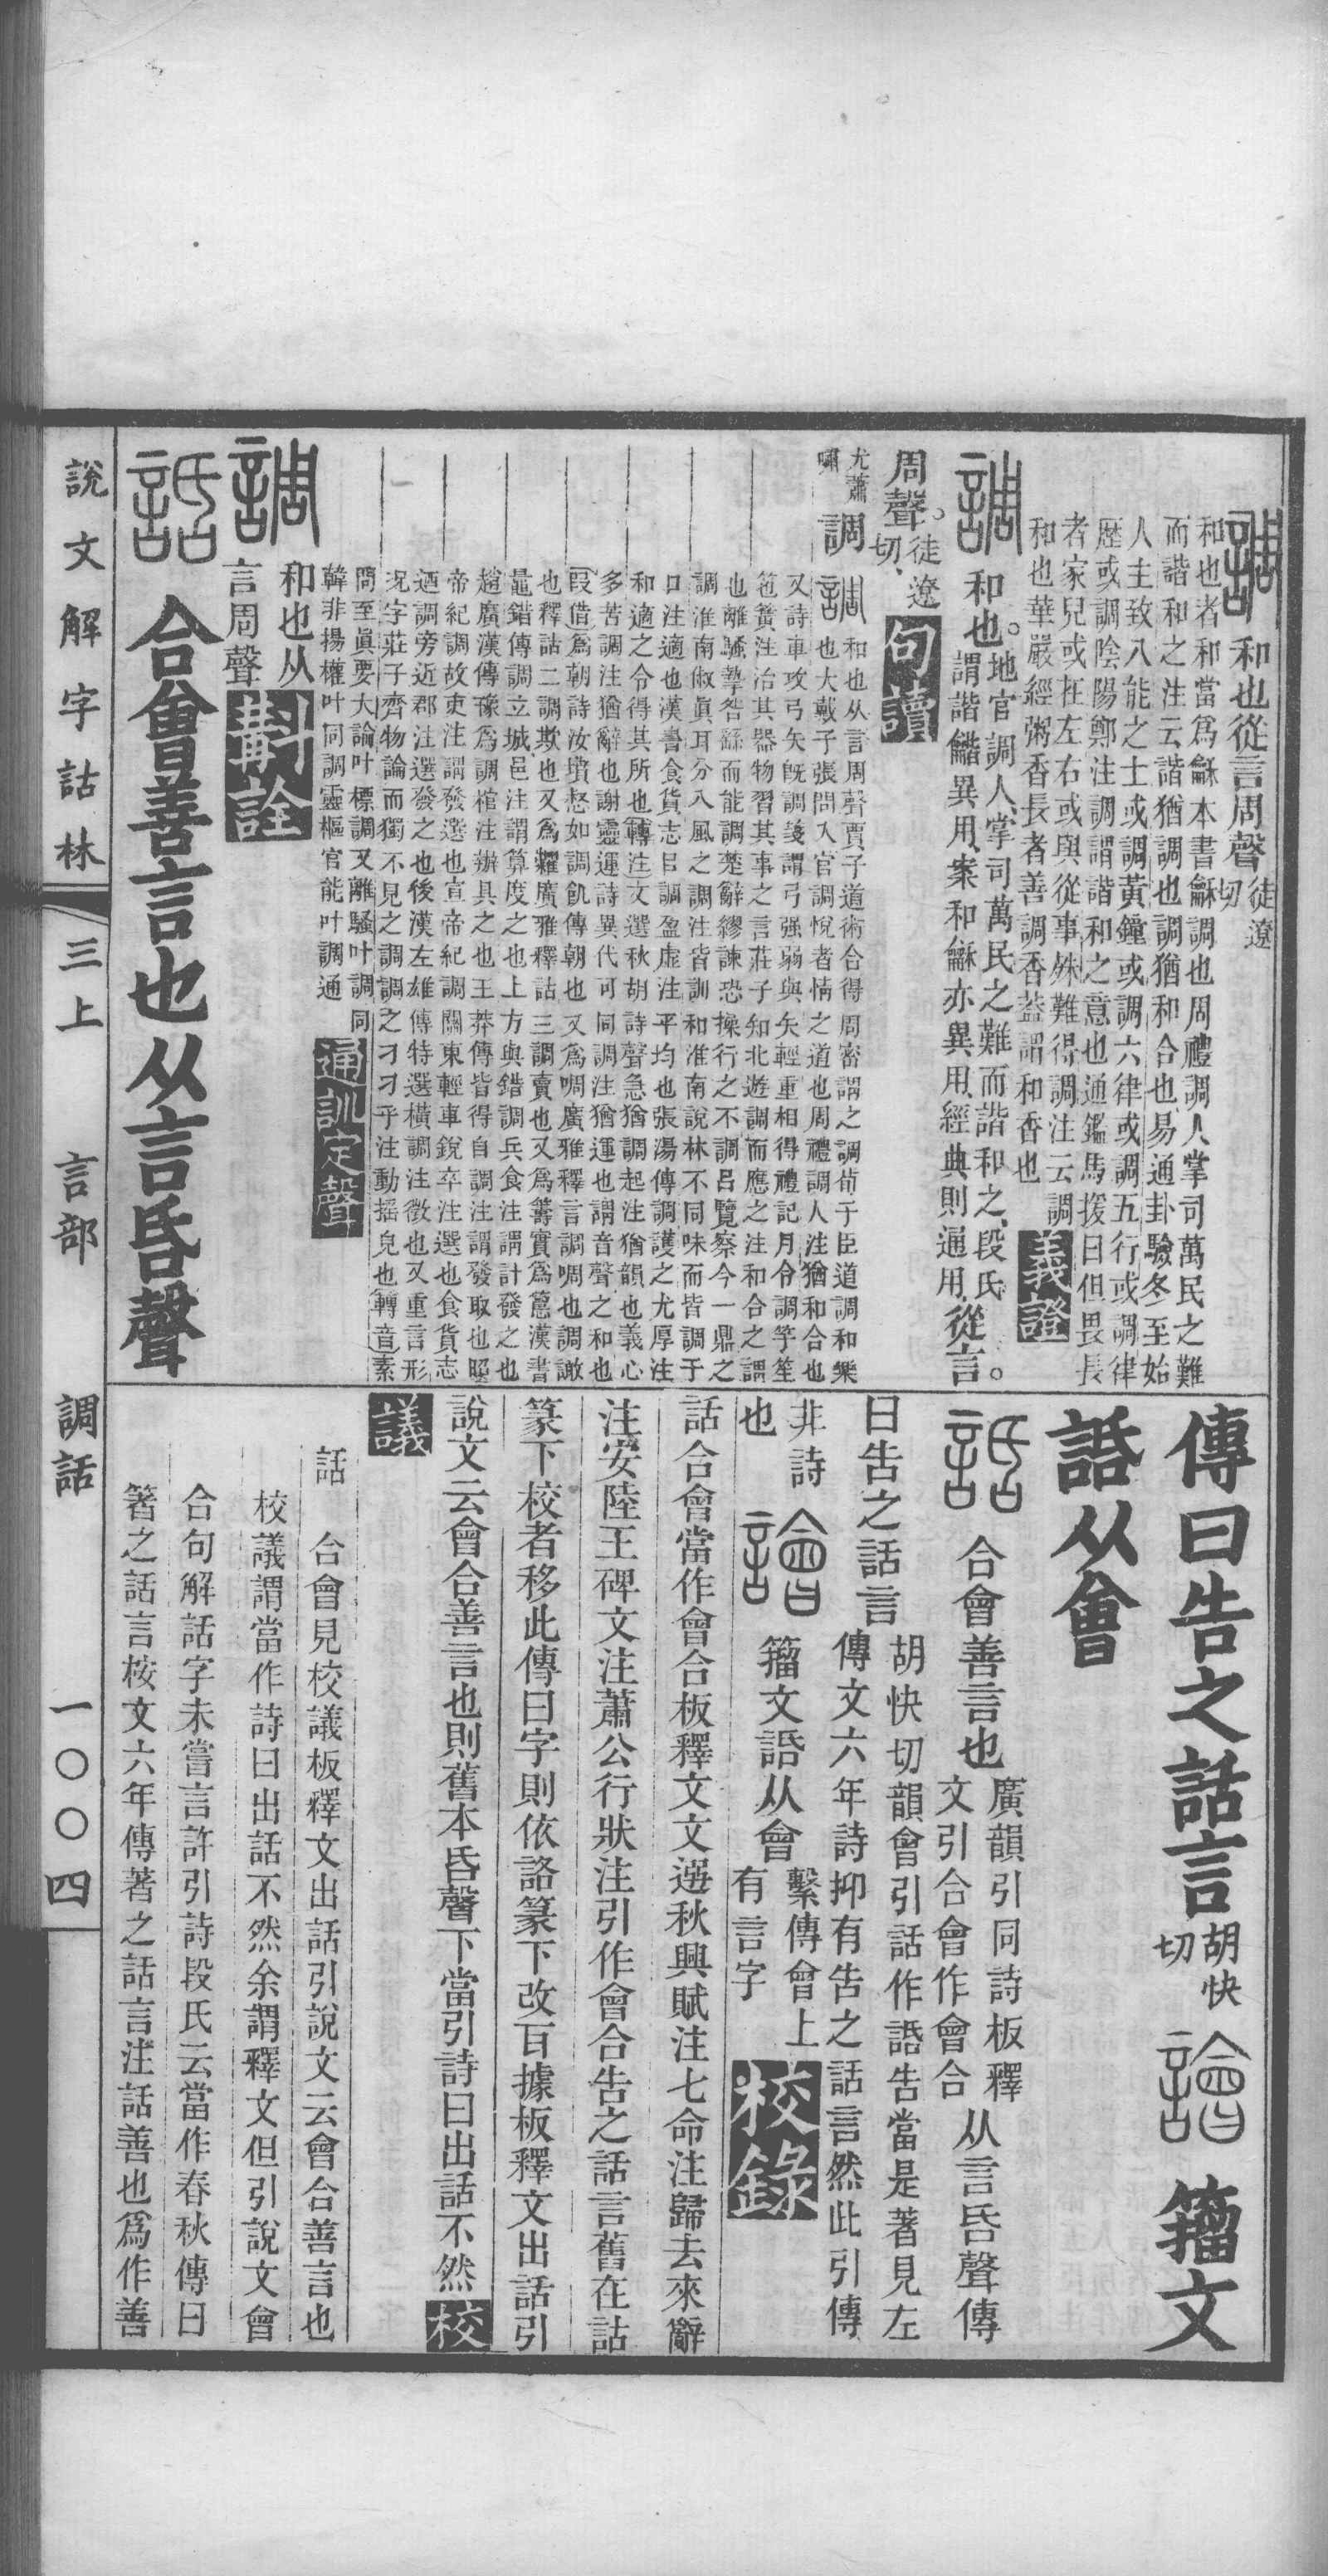 調 和也從言周聲徒遼切
和也者和當爲龢本書龢調也周禮調人掌司萬民之難
而諧和之注云諧猶調也調猶和合也易通卦驗冬至始
人主致八能之士或調黃鐘或調六律或調五行或調律
歷或調陰陽鄭注調謂諧和之意也通鑑馬援曰但畏長
者家兒或在左右或與從事殊難得調注云調
和也華嚴經粥香長者善調香葢謂和香也 義證
調 和也。地官調人、掌司萬民之難而諧和之、段氏
謂諧龤異用、案和龢亦異用、經典則通用、從言。
周聲。徒遼切、 句讀
尤蕭嘯 調
調 和也从言周聲賈子道術合得周密謂之調荀子臣道調和樂
也大戴子張問入官調悅者情之道也周禮調人注猶和合也
又詩車攻弓矢旣調箋謂弓强弱與矢輕重相得禮記月令調竽笙
笆簧注治其器物習其事之言莊子知北遊調而應之注和合之謂
也離騷摯咎繇而能調楚辭繆諫恐操行之不調呂覽察今一鼎之
調淮南俶眞耳分八風之調注皆訓和淮南說林不同味而皆調于
口注適也漢書食貨志㠯調盈虛注平均也張湯傳調護之尤厚注
和適之令得其所也轉注文選秋胡詩聲急猶調起注猶韻也義心
多苦調注猶辭也謝靈運詩異代可同調注猶運也謂音聲之和也
叚借爲朝詩汝墳惄如調飢傳朝也又爲啁廣雅釋言調啁也調譀
也釋詁二調欺也又爲糶廣雅釋詁三調賣也又爲籌實爲憲漢書
鼂錯傳調立城邑注謂算度之也上方與錯調兵食注謂計發之也
趙廣漢傳豫爲調棺注辦具之也王莽傳皆得自調注謂發取也昭
帝紀調故吏注謂發選也宣帝紀調關東輕車銳卒注選也食貨志
迺調旁近郡注選發之也後漢左雄傳特選橫調注徵也又重言形
況字莊子齊物論而獨不見之調調之刁刁乎注動搖皃也轉音素
問至眞要大論叶標調又離騷叶調同
韓非揚權叶同調靈樞官能叶調通 通訓定聲
調 和也从
言周聲 斠詮
話 合會善言也从言𠯑聲
傳曰告之話言胡快切 譮 籀文
䛡从會
話 合會善言也廣韻引同詩板釋文引合會作會合从言𠯑聲傳
曰告之話言胡快切韻會引話作䛡告當是著見左傳文六年詩抑有告之話言然此引傳
非詩也 譮 籀文䛡从會繫傳會上有言字 校錄
話 合會當作會合板釋文文選秋興賦注七命注歸去來辭
注安陸王碑文注蕭公行狀注引作會合告之話言舊在詁
篆下校者移此傳曰字則依詻篆下改耳據板釋文出話引
說文云會合善言也則舊本𠯑聲下當引詩曰出話不然 校
議
話 合會見校議板釋文出話引說文云會合善言也
校議謂當作詩曰出話不然余謂釋文但引說文會
合句解話字未嘗言許引詩段氏云當作春秋傳曰
箸之話言桉文六年傳著之話言注話善也爲作善
說文解字詁林 三上 言部 調話 一〇〇四